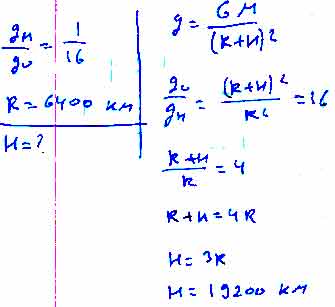 gн/g₀ = 1/16
R = 6400 км
H = ?
g = GM/(R+H)²
g₀/gн = (R+H)²/R² = 16
(R+H)/R = 4
R+H = 4R
H = 3R
H = 19200 км